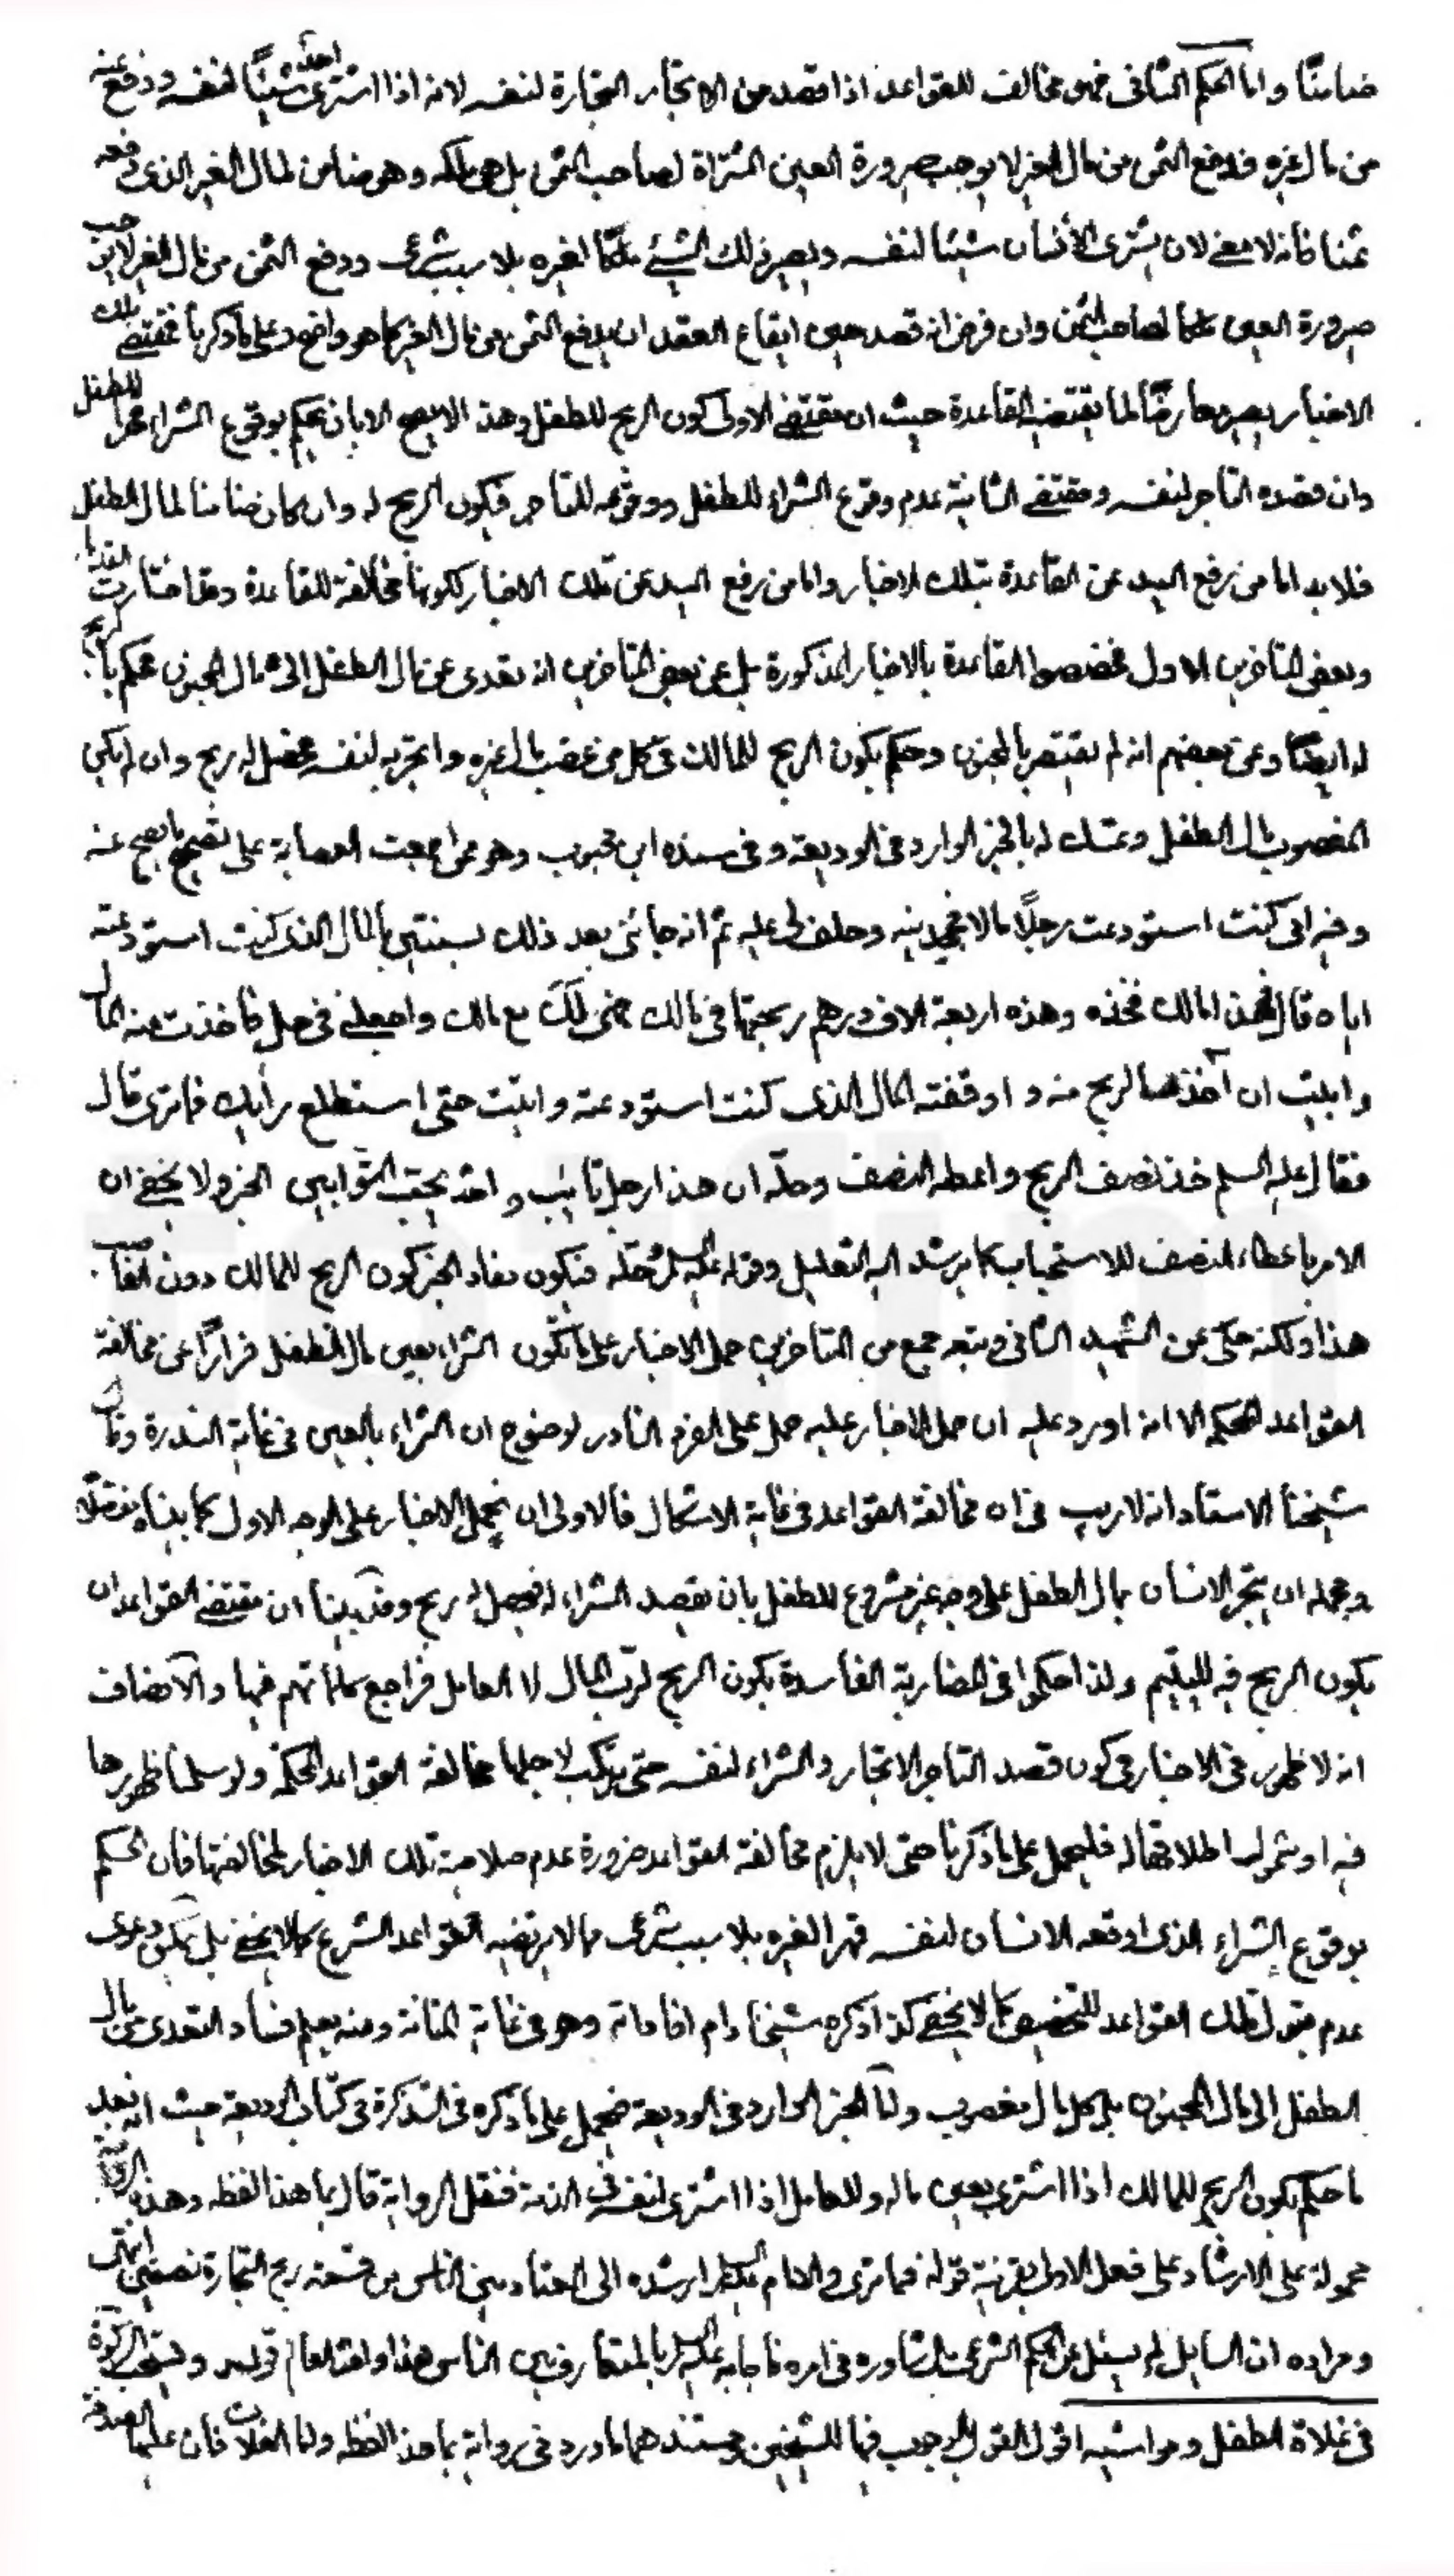 ضامنًا واما الحكم الثانى فهو مخالف للقواعد اذا قصد من الاتجار التجارة لنفسه لانه اذا اشترى احد شيئًا لنفسه ودفع ثمنه
من مال غيره فدفع الثمن من مال الغير لا يوجب صيرورة العين المشتراة لصاحب الثمن بل هى ملكه وهو ضامن لمال الغير الذى دفعه
ثمنا فانه لا معنى لان يشترى الأنسان شيئا لنفسه ويصير ذلك الشيئ ملكًا لغيره بلا سبب شرعى ودفع الثمن من مال الغير لا يوجب
صيرورة العين ملكا لصاحب الثمن وان فرض انه قصد حين ايقاع العقد ان يدفع الثمن من مال الغير كما هو واضح وعلى ما ذكرنا فمقتضى تلك
الاخبار يصير معارضًا لما يقتضيه القاعدة حيث ان مقتضى الاولى كون الربح للطفل وهذا لا يصح الا بان يحكم بوقوع الشراء قهرا للطفل
وان قصده التاجر لنفسه ومقتضى الثانية عدم وقوع الشراء للطفل ووقوعه للتاجر فيكون الربح له وان كان ضامنا لمال الطفل
فلا بد اما من رفع اليد عن القاعدة بتلك الاخبار واما من رفع اليد عن تلك الاخبار لكونها مخالفة للقاعدة وقد اختارت القدماء
وبعض المتاخرين الاول فخصصوا القاعدة بالاخبار المذكورة بل عن بعض المتاخرين انه تعدى عن مال الطفل الى مال المجنون فحكم بان الربح
له ايضًا وعن بعضهم انه لم يقتصر بالمجنون وحكم بكون الربح للمالك فى كل من غصب مال غيره واتجر به لنفسه فحصل له ربح وان لم يكن
المغصوب مال الطفل وتمسك له بالخبر الوارد فى الوديعة وفى سنده ابن محبوب وهو ممن اجمعت العصابة على تصحيح ما يصح عنه
وفيه انى كنت استودعت رجلًا مالا فجحدنيه وحلف لى عليه ثم انه جائنى بعد ذلك بسنتين بالمال الذى كنت استودعته
اياه فقال هذا مالك فخذه وهذه اربعة الاف درهم ربحتها فى مالك فهى لك مع مالك واجعلنى فى حل فاخذت منه المال
وابيت ان آخذ الربح منه واوقفته المال الذى كنت استودعته واتيت حتى استطلع رأيك فما ترى قال
فقال عليه السلم خذ نصف الربح واعطه النصف وحلّه ان هذا رجل تائب والله يحب التوابين الخبر ولا يخفى ان
الامر باعطاء النصف للاستحباب كما يرشد اليه التعليل وقوله عليه السلم حلّه فيكون مفاد الخبر كون الربح للمالك دون الغاصب
هذا ولكنه حكى عن الشهيد الثانى وتبعه جمع من المتاخرين حمل الاخبار على ما تكون الشراء بعين مال الطفل فرارًا عن مخالفة
القواعد المحكمة الا انه اورد عليه ان حمل الاخبار عليه حمل على الفرد النادر لوضوح ان الشراء بالعين فى غاية الندرة وقال
شيخنا الاستاد انه لا ريب فى ان مخالفة القواعد فى غاية الاشكال فالاولى ان يحمل الاخبار على الوجه الاول كما بيناه مفصّلا
ومجمله ان يتجر الانسان بمال الطفل على وجه غير مشروع للطفل بان يقصد الشراء له فيحصل له ربح وقد بينا ان مقتضى القواعد ان
يكون الربح فيه لليتيم ولذا حكموا فى المضاربة الفاسدة بكون الربح لرب المال لا العامل فراجع كلماتهم فيها والانصاف
انه لا ظهور فى الاخبار فى كون قصد التاجر الاتجار والشراء لنفسه حتى يرتكب لاجلها مخالفة القواعد المحكمة ولو سلمنا ظهورها
فيه او شمول اطلاقها له فليحمل على ما ذكرنا حتى لا يلزم مخالفة القواعد ضرورة عدم صلاحية تلك الاخبار لمخالفتها فان الحكم
بوقوع الشراء الذى اوقعه الانسان لنفسه قهرا لغيره بلا سبب شرعى مما لا يرتضيه القواعد الشرع كما لا يخفى بل يمكن دعوى
عدم قبول تلك القواعد للتخصيص كما لا يخفى كذا ذكره شيخنا دام افاداته وهو فى غاية المتانة ومنه يعلم فساد التعدى من مال
الطفل الى مال المجنون بل كل مال مغصوب واما الخبر الوارد فى الوديعة فيحمل على ما ذكره فى التذكرة فى كتاب الوديعة حيث انه بعد
ما حكم بكون الربح للمالك اذا اشترى بعين ماله وللعامل اذا اشترى لنفسه فى الذمة فنقل الرواية قال بما هذا لفظه وهذه الرواية
محمولة على الارشاد على فعل الاولى بقرينة قوله فما ترى والامام عليه السلم ارشده الى المعتاد بين الناس من قسمة ربح التجارة نصفين انتهى
ومراده ان السايل لم يسئل عن الحكم الشرعى بل شاوره فى امره فاجابه عليه السلم بالمتعارف بين الناس هذا والله العالم قوله وتستحب الزكوة
فى غلاة الطفل ومواشيه اقول القول بالوجوب فيها للشيخين ومستندهما ما ورد فى رواية بما هذا لفظه واما الغلات فان عليها الصدقة